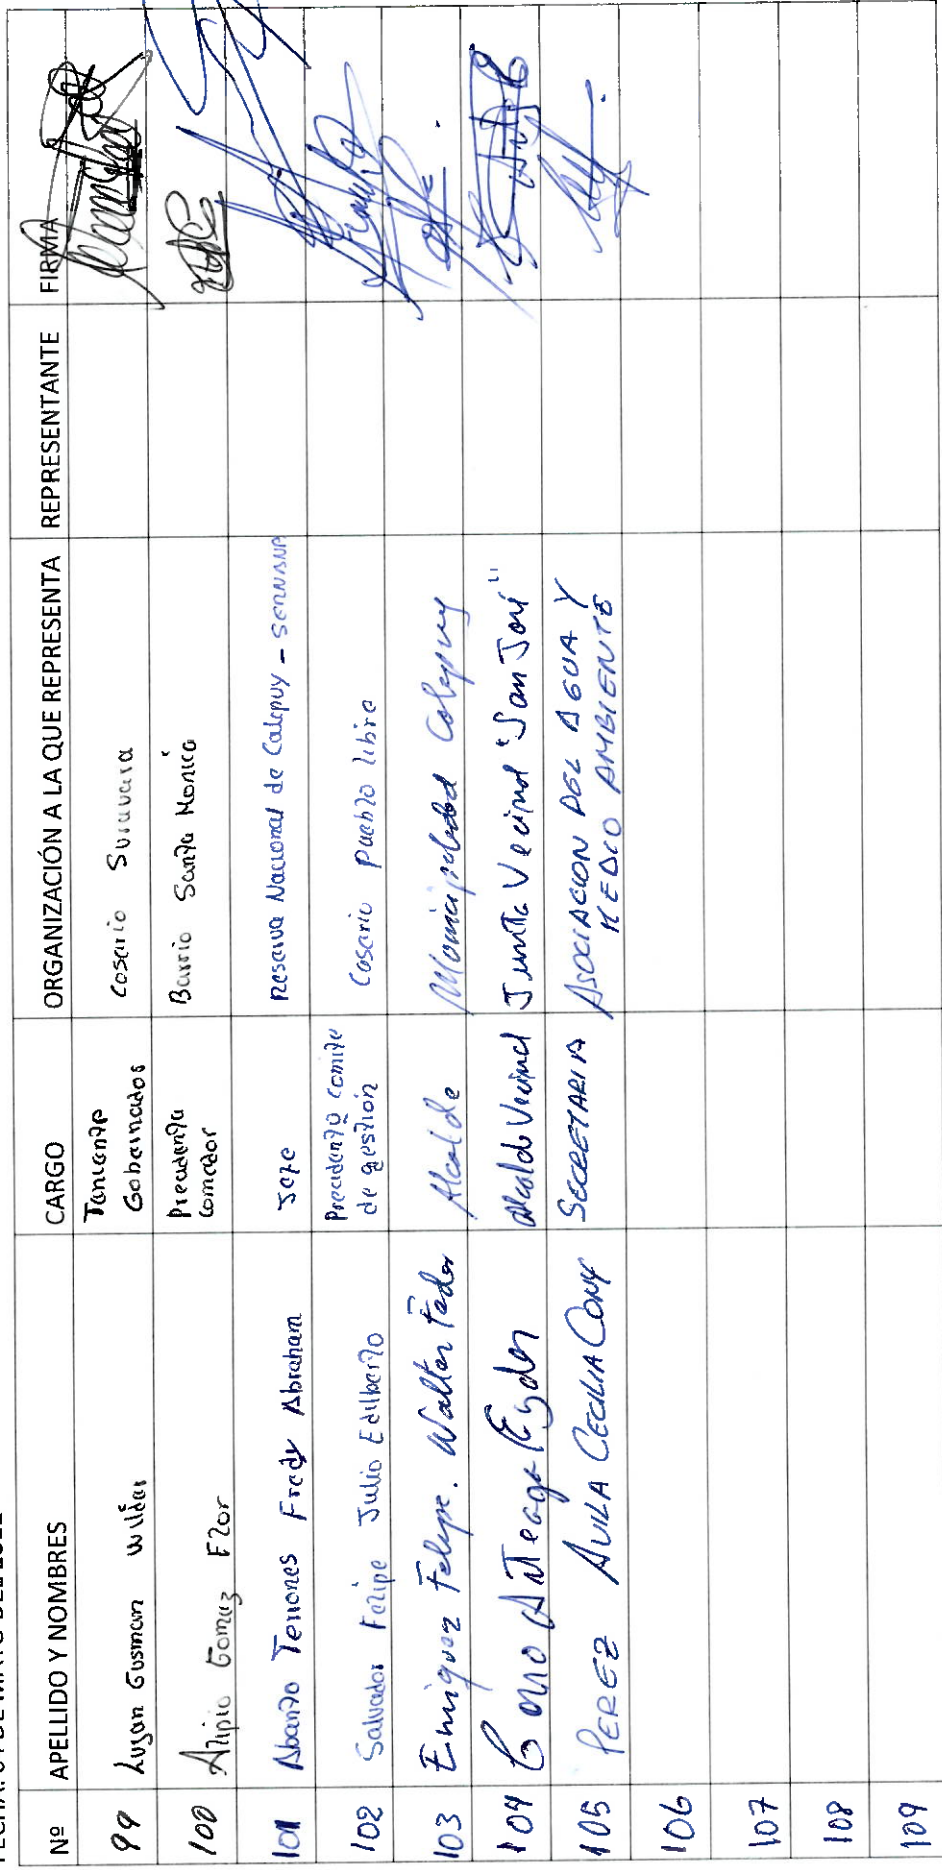 Nº APELLIDO Y NOMBRES CARGO ORGANIZACIÓN A LA QUE REPRESENTA REPRESENTANTE FIRMA
99 Lujan Gusman Wilder Teniente Gobernador Caserio Suruvara
100 Alipio Gomez Flor Presidenta comedor Barrio Santa Monica
101 Abanto Terrones Fredy Abraham Jefe Reserva Nacional de Calipuy - SERNANP
102 Salvador Felipe Julio Edilberto Presidente comite de gestion Caserio Pueblo libre
103 Enriquez Felipe. Walter Alcalde Municipalidad Calipuy
104 Arteaga Eyder Alcalde Vecinal Junta Vecinal "San José"
105 PEREZ AVILA CECILIA CONY SECRETARIA ASOCIACION DEL AGUA Y
MEDIO AMBIENTE
106
107
108
109